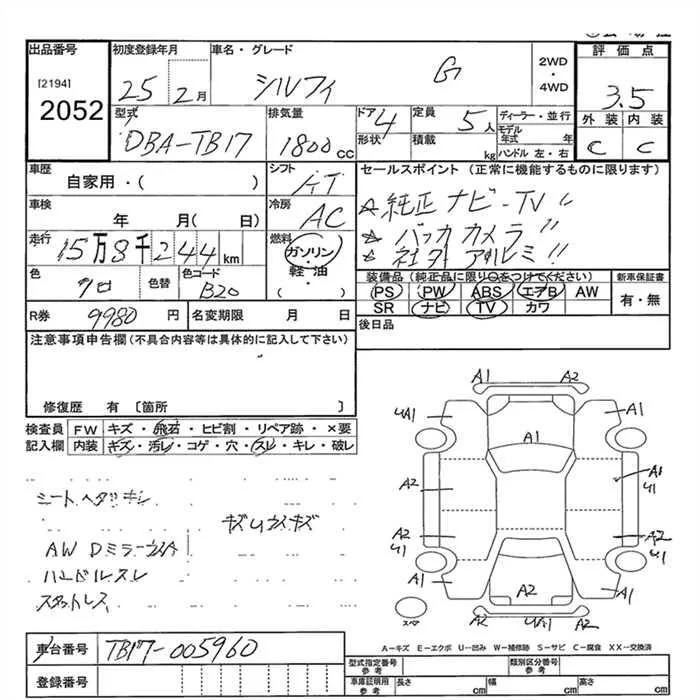 出品番号 初度登録年月 車名・グレード 評価点
[2194] 2052
25 2月 シルフィ G 2WD・4WD 3.5
型式 排気量 ドア 定員 ディーラー・並行 外装 内装
DBA-TB17 1800cc 4 5人 モデル年式 年 C C
形状 積載 kg ハンドル 左・右
車歴 自家用・( ) シフト AT セールスポイント (正常に機能するものに限ります)
車検 年 月( 日) 冷房 AC
☆純正ナビ-TV!!
☆バックカメラ!!
☆社外アルミ!!
走行 15万8千244km 燃料 ガソリン・軽油・( )
色 クロ 色替 色コード B20
装備品 (純正品に限り○をつけてください) 新車保証書
PS PW ABS エアB AW 有・無
SR ナビ TV カワ
R券 9980円 名変期限 月 日 後日品
注意事項申告欄 (不具合内容等は具体的に記入して下さい)
修復歴 有 〔箇所 〕
検査員 FW キズ・飛石・ヒビ割・リペア跡・×要
記入欄 内装 キズ・汚レ・コゲ・穴・スレ・キレ・破レ
キズ
ハンドルスレ
スタットレス
A1 A2
A1 A1
A1
A2 A1 U1
A2 U1 A2 U1
A1 A2 A1
スペア U2 A2
A−キズ E−エクボ U−凹み W−補修跡 S−サビ C−腐食 XX−交換済
車台番号 TB17-005960
登録番号
型式指定番号 参考 類別区分番号 参考
車庫証明用 参考 長さ cm 幅 cm 高さ cm